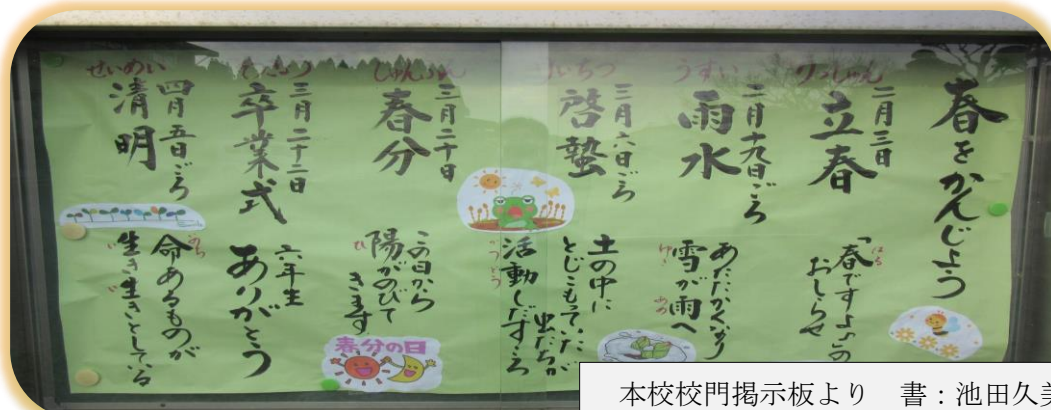 春をかんじよう
りっしゅん
二月三日
立春
「春ですよ」の
おしらせ
うすい
二月十九日ごろ
雨水
あたたかくなり
雪が雨へ
けいちつ
三月六日ごろ
啓蟄
土の中に
とじこもっていた、
虫たちが
活動しだすころ
しゅんぶん
三月二十日
春分
この日から
陽がのびて
きます
春分の日
三月二十二日
卒業式
六年生
ありがとう
せいめい
四月五日ごろ
清明
命あるものが
生き生きとしている
本校校門掲示板より 書：池田久美